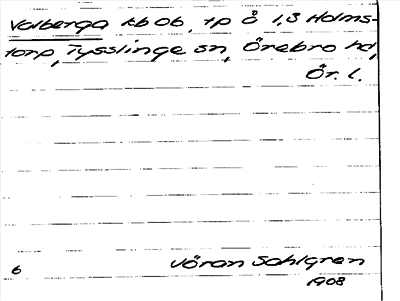 Valberga kb 06, tp å 1,3 Holms-
torp, Tysslinge sn, Örebro hd,
Ör. l.
6 Jöran Sahlgren
1908